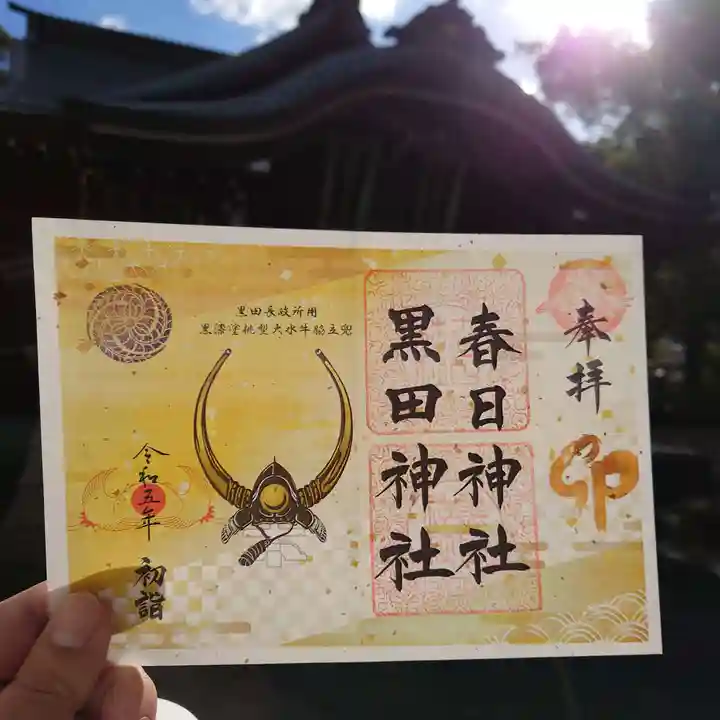 奉拝
卯
春日神社
黒田神社
黒田長政所用
黒漆塗桃型大水牛脇立兜
令和五年
初詣